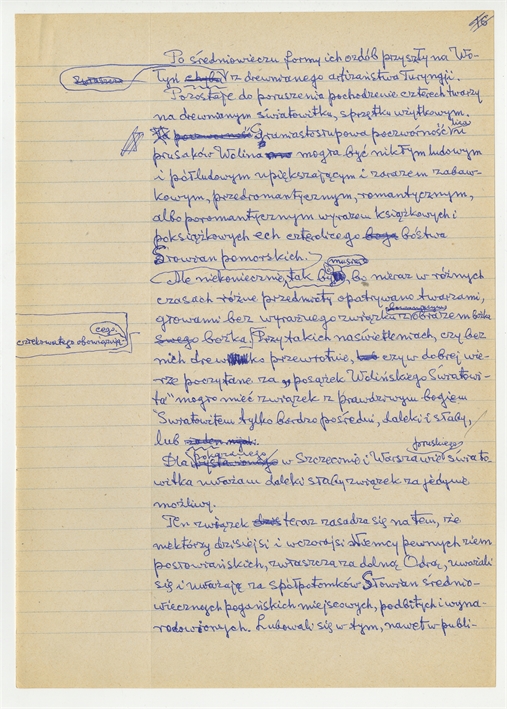 16
Po średniowieczu formy ich ozdób przyszły na Wo-
lyń chyba z drewnianego artizaństwa Turyngji.
Pozostaje do poruszenia pochodzenie czterech twarzy
na drewnianym światowitku, sprzętku użytkowym.
Graniastosłupowa poczwórność
prusaków Wolina mogła być nikłym ludowym
i półludowym upiększającym i zarazem zabaw-
kowym, przedromantycznym, romantycznym,
albo poromantycznym wyrazem książkowych i
poksiążkowych ech czterolicego bóstwa
Słowian pomorskich.
musiało
Ale niekoniecznie, tak być, bo nieraz w różnych
czasach różne przedmioty opatrywano twarzami,
głowami bez wyraźnego związku z obrazem bóstwa
cego.
czterokwatego obowiązują-
swego bożka. Przy takich naświetleniach, czy bez
nich drewienko przewrotnie, czy w dobrej wie-
rze poczytane za „posążek Wolińskiego Światowi-
ta" mogło mieć związek z prawdziwym bogiem
Światowitem tylko bardzo pośredni, daleki i słaby,
lub żaden
pokazanego
pruskiego
Dla w Szczecinie i Warszawie świato-
witka uważam daleki słaby związek za jedynie
możliwy.
Ten związek teraz zasadza się na tem, że
niektórzy dzisiejsi i wczorajsi Niemcy pewnych ziem
posłowiańskich, zwłaszcza za dolną Odrą, uważali
się i uważają za spółpotomków Słowian średnio-
wiecznych pogańskich miejscowych, podbitych i wyna-
rodowionych. Lubowali się w tym, nawet w publi-